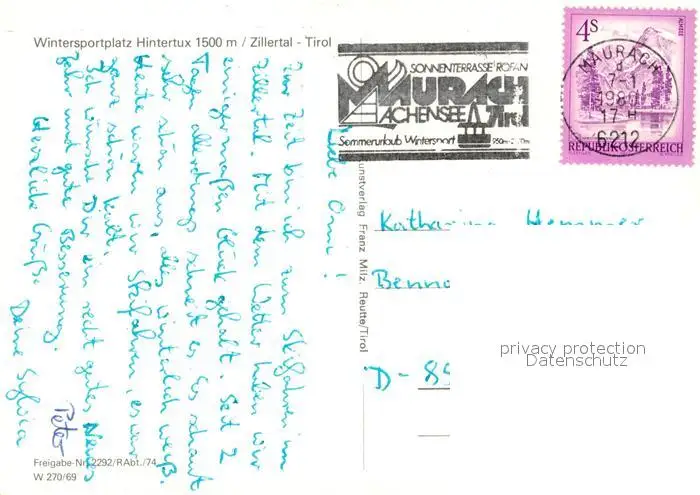 Wintersportplatz Hintertux 1500 m / Zillertal - Tirol
SONNENTERRASSE ROFAN
MAURACH
ACHENSEE Tirol
Sommerurlaub Wintersport
4S
ALMSEE
REPUBLIK ÖSTERREICH
MAURACH
7-1
1980
17 H
6212
Liebe Omi!
Zur Zeit bin ich zum Skifahren im
Zillertal. Mit dem Wetter haben wir
einigermaßen Glück gehabt. Seit 2
Tagen allerdings schneit es. Es schaut
sehr schön aus, alles winterlich weiß.
Heute waren wir Skifahren, es war
ganz schön kalt.
Ich wünsche Dir ein recht gutes Neues
Jahr und gute Besserung.
Herzliche Grüße
Deine Sylvia
Peter
Kunstverlag Franz Milz, Reutte/Tirol
Katharina Hemmer
Benno
D - 89
privacy protection
Datenschutz
Freigabe-Nr. 2292/RAbt./74
W 270/69